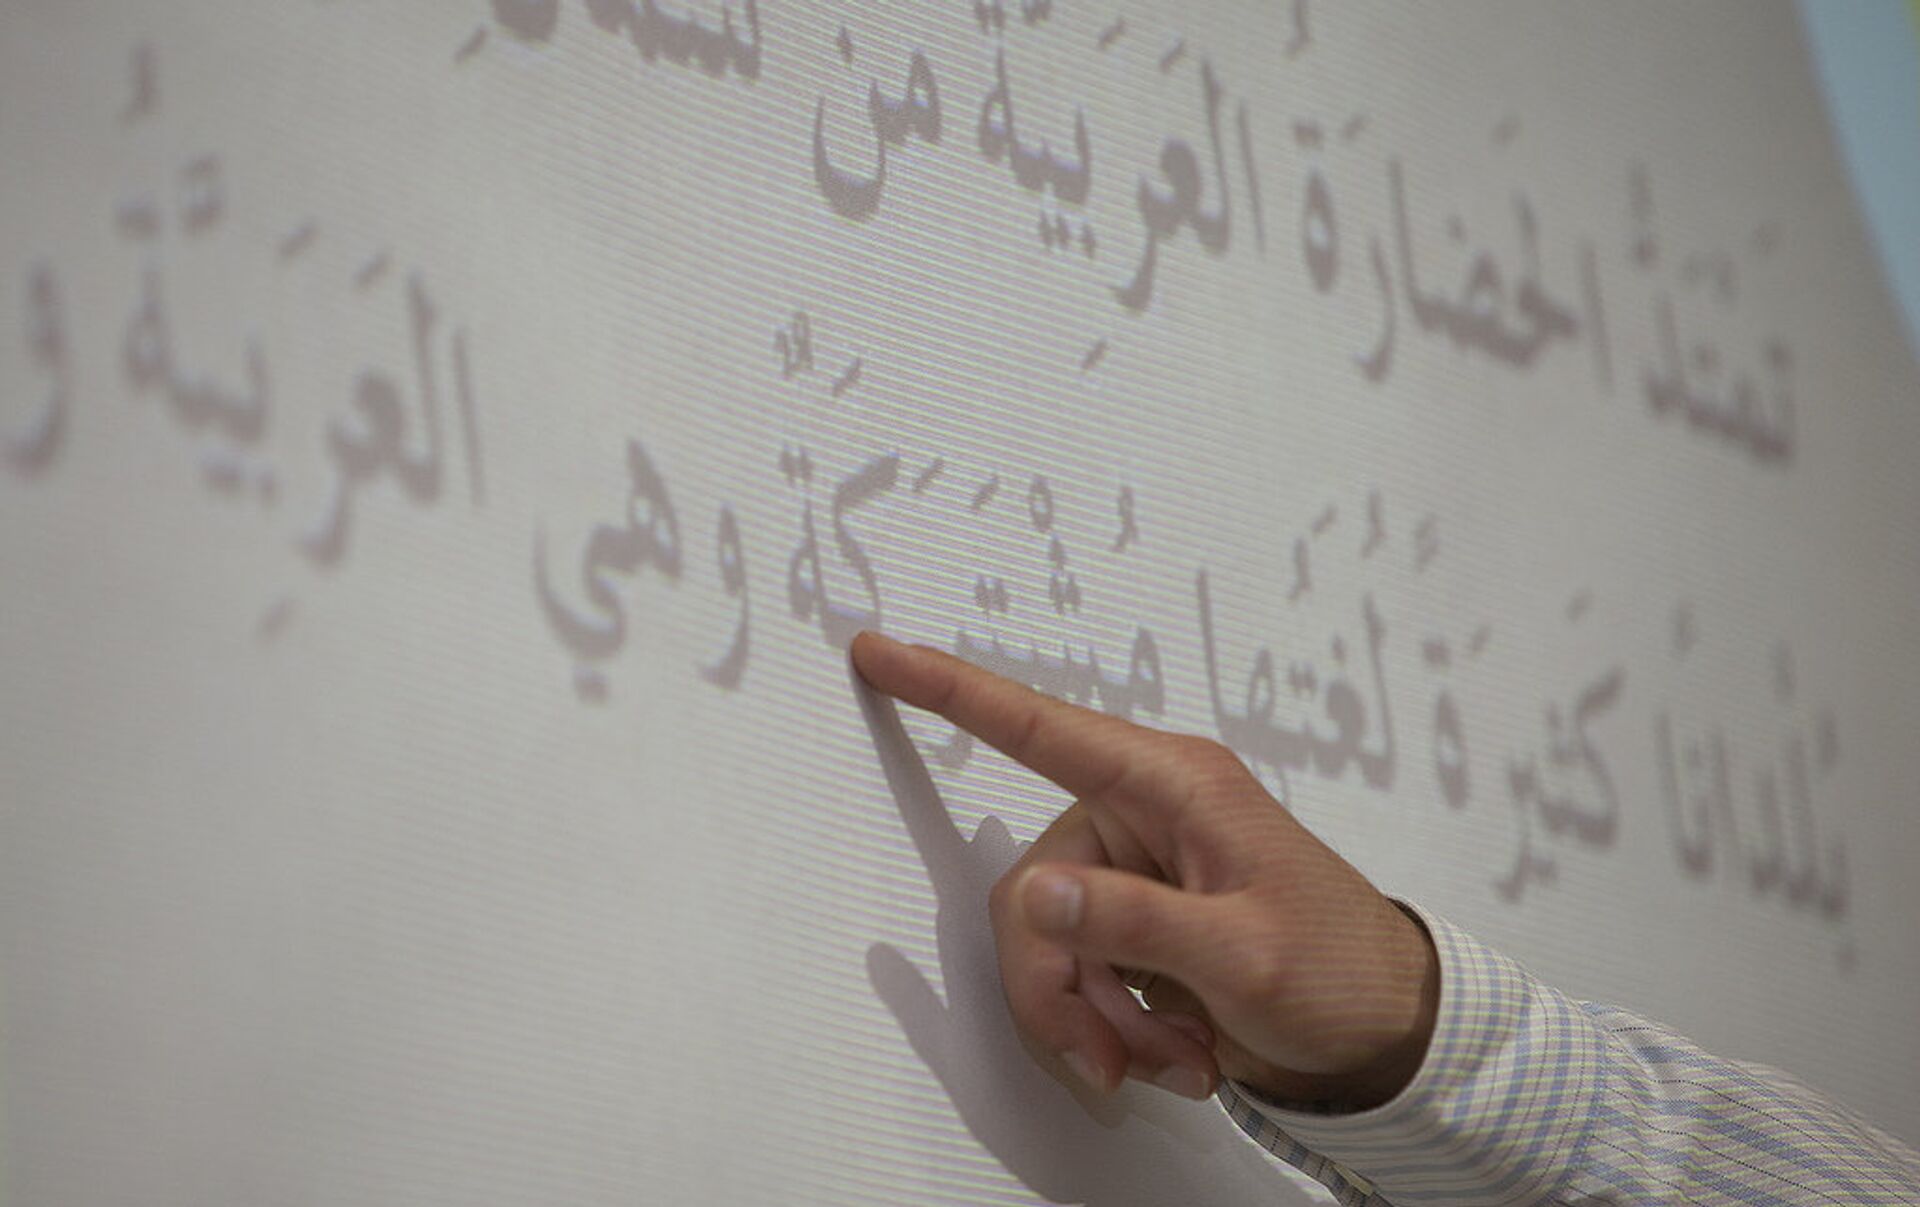 تَمْتَدُّ الحَضارَةُ العَرَبِيَّةُ مِن
بُلْداناً كَثيرَةً لُغَتُها مُشْتَرَكَةٌ وهي العَرَبِيَّةُ و